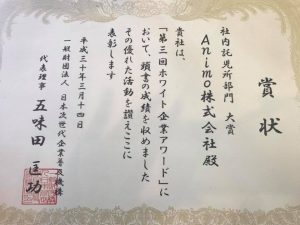 賞状
社内託児所部門 大賞
Animo株式会社殿
貴社は、
「第三回ホワイト企業アワード」に
おいて、頭書の成績を収めました
その優れた活動を讃えここに
表彰します
平成三十年三月十四日
一般財団法人 日本次世代企業普及機構
代表理事 五味田 匡功